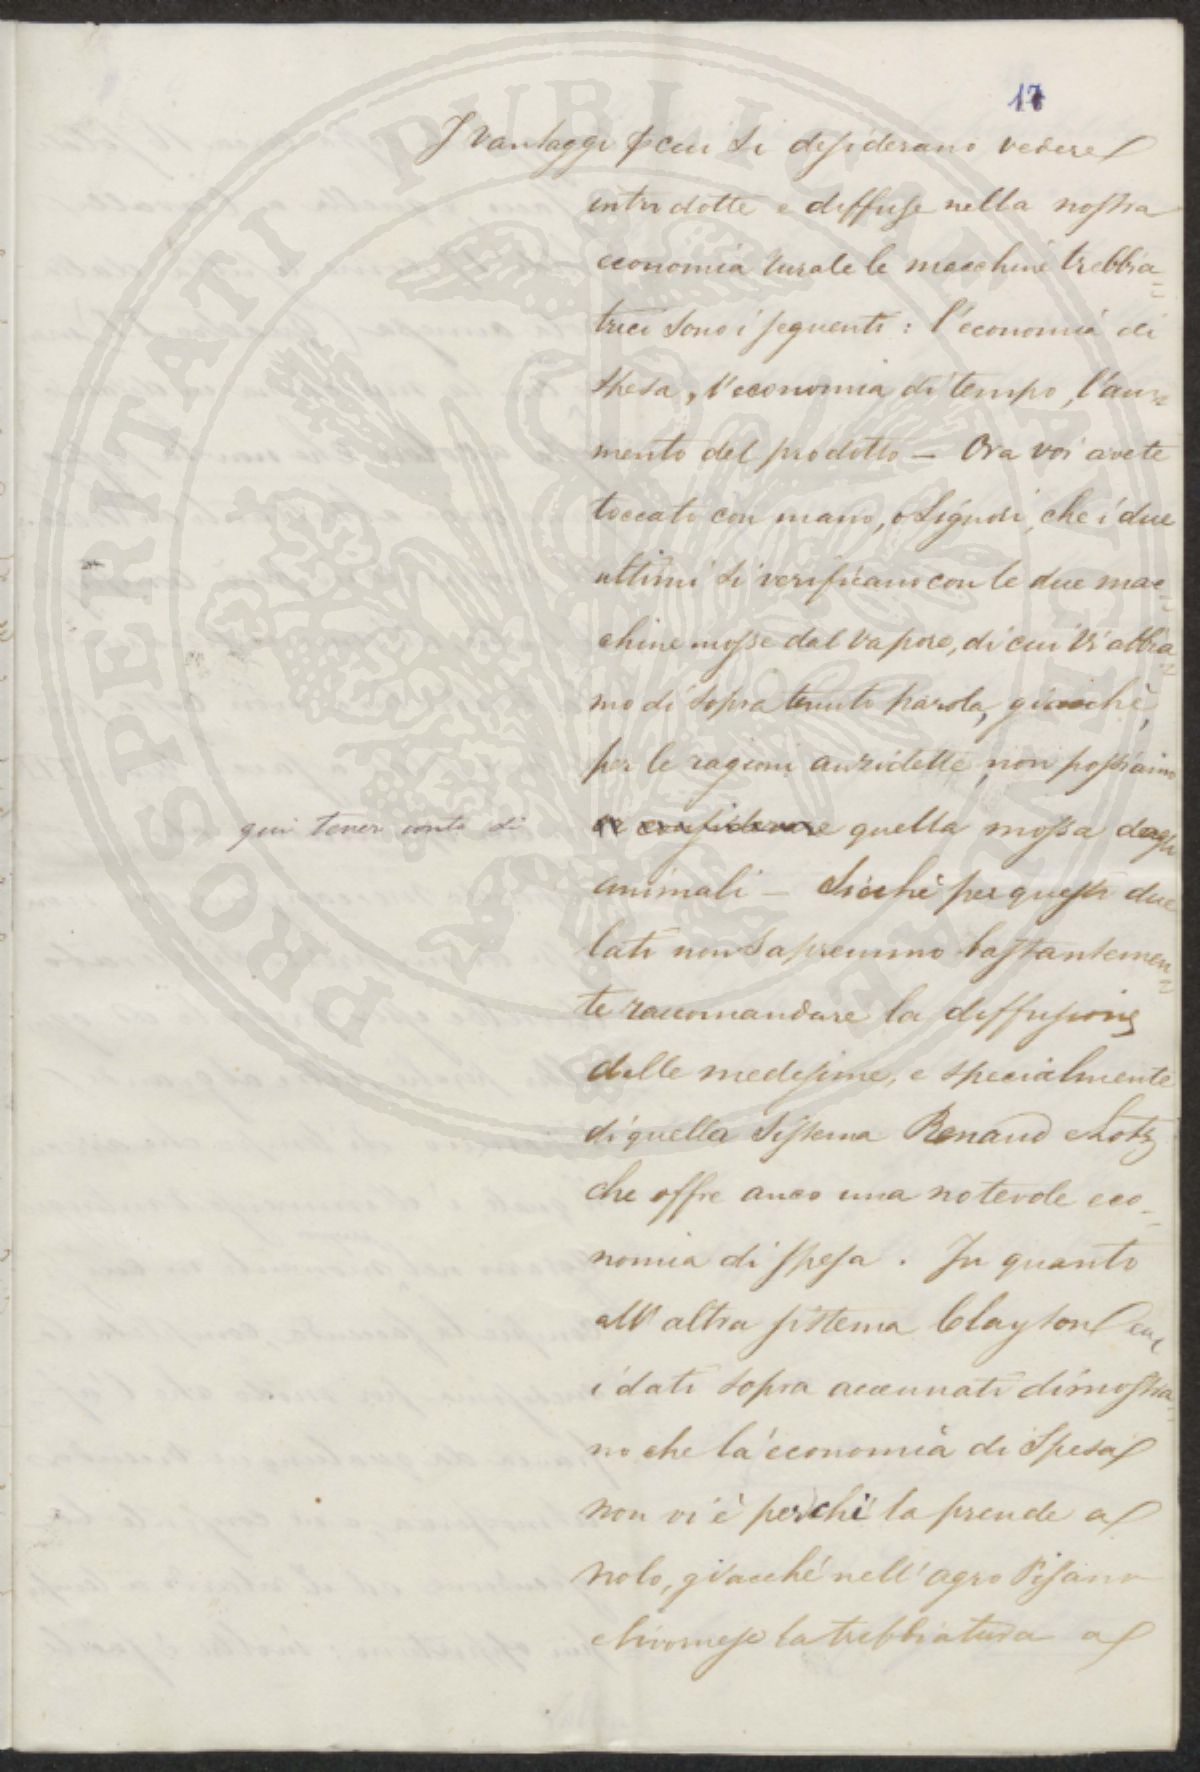 17
I vantaggi p cui si desiderano vedere
introdotte e diffuse nella nostra
economia rurale le macchine trebbia=
trici sono i seguenti: l'economia di
spesa, l'economia di tempo, l'au=
mento del prodotto — Ora voi avete
toccato con mano, o Signori, che i due
ultimi si verificano con le due mac=
chine mosse dal vapore, di cui Vi abbia=
mo di sopra tenuto parola, giacchè,
per le ragioni anzidette, non possiamo
qui tener conto di
considerare quella mossa dagli
animali — Sicchè per questi due
lati non sapremmo bastantemen=
te raccomandare la diffusione
delle medesime, e specialmente
di quella sistema Renaud e Lotz
che offre anco una notevole eco=
nomia di spesa. In quanto
all'altra sistema Clayton
i dati sopra accennati dimostra=
no che la economia di spesa
non vi è per chi la prende a
nolo, giacché nell'agro Pisano
e Livornese la trebbiatura a
PROSPERITATI PUBLICAE AUGENDAE